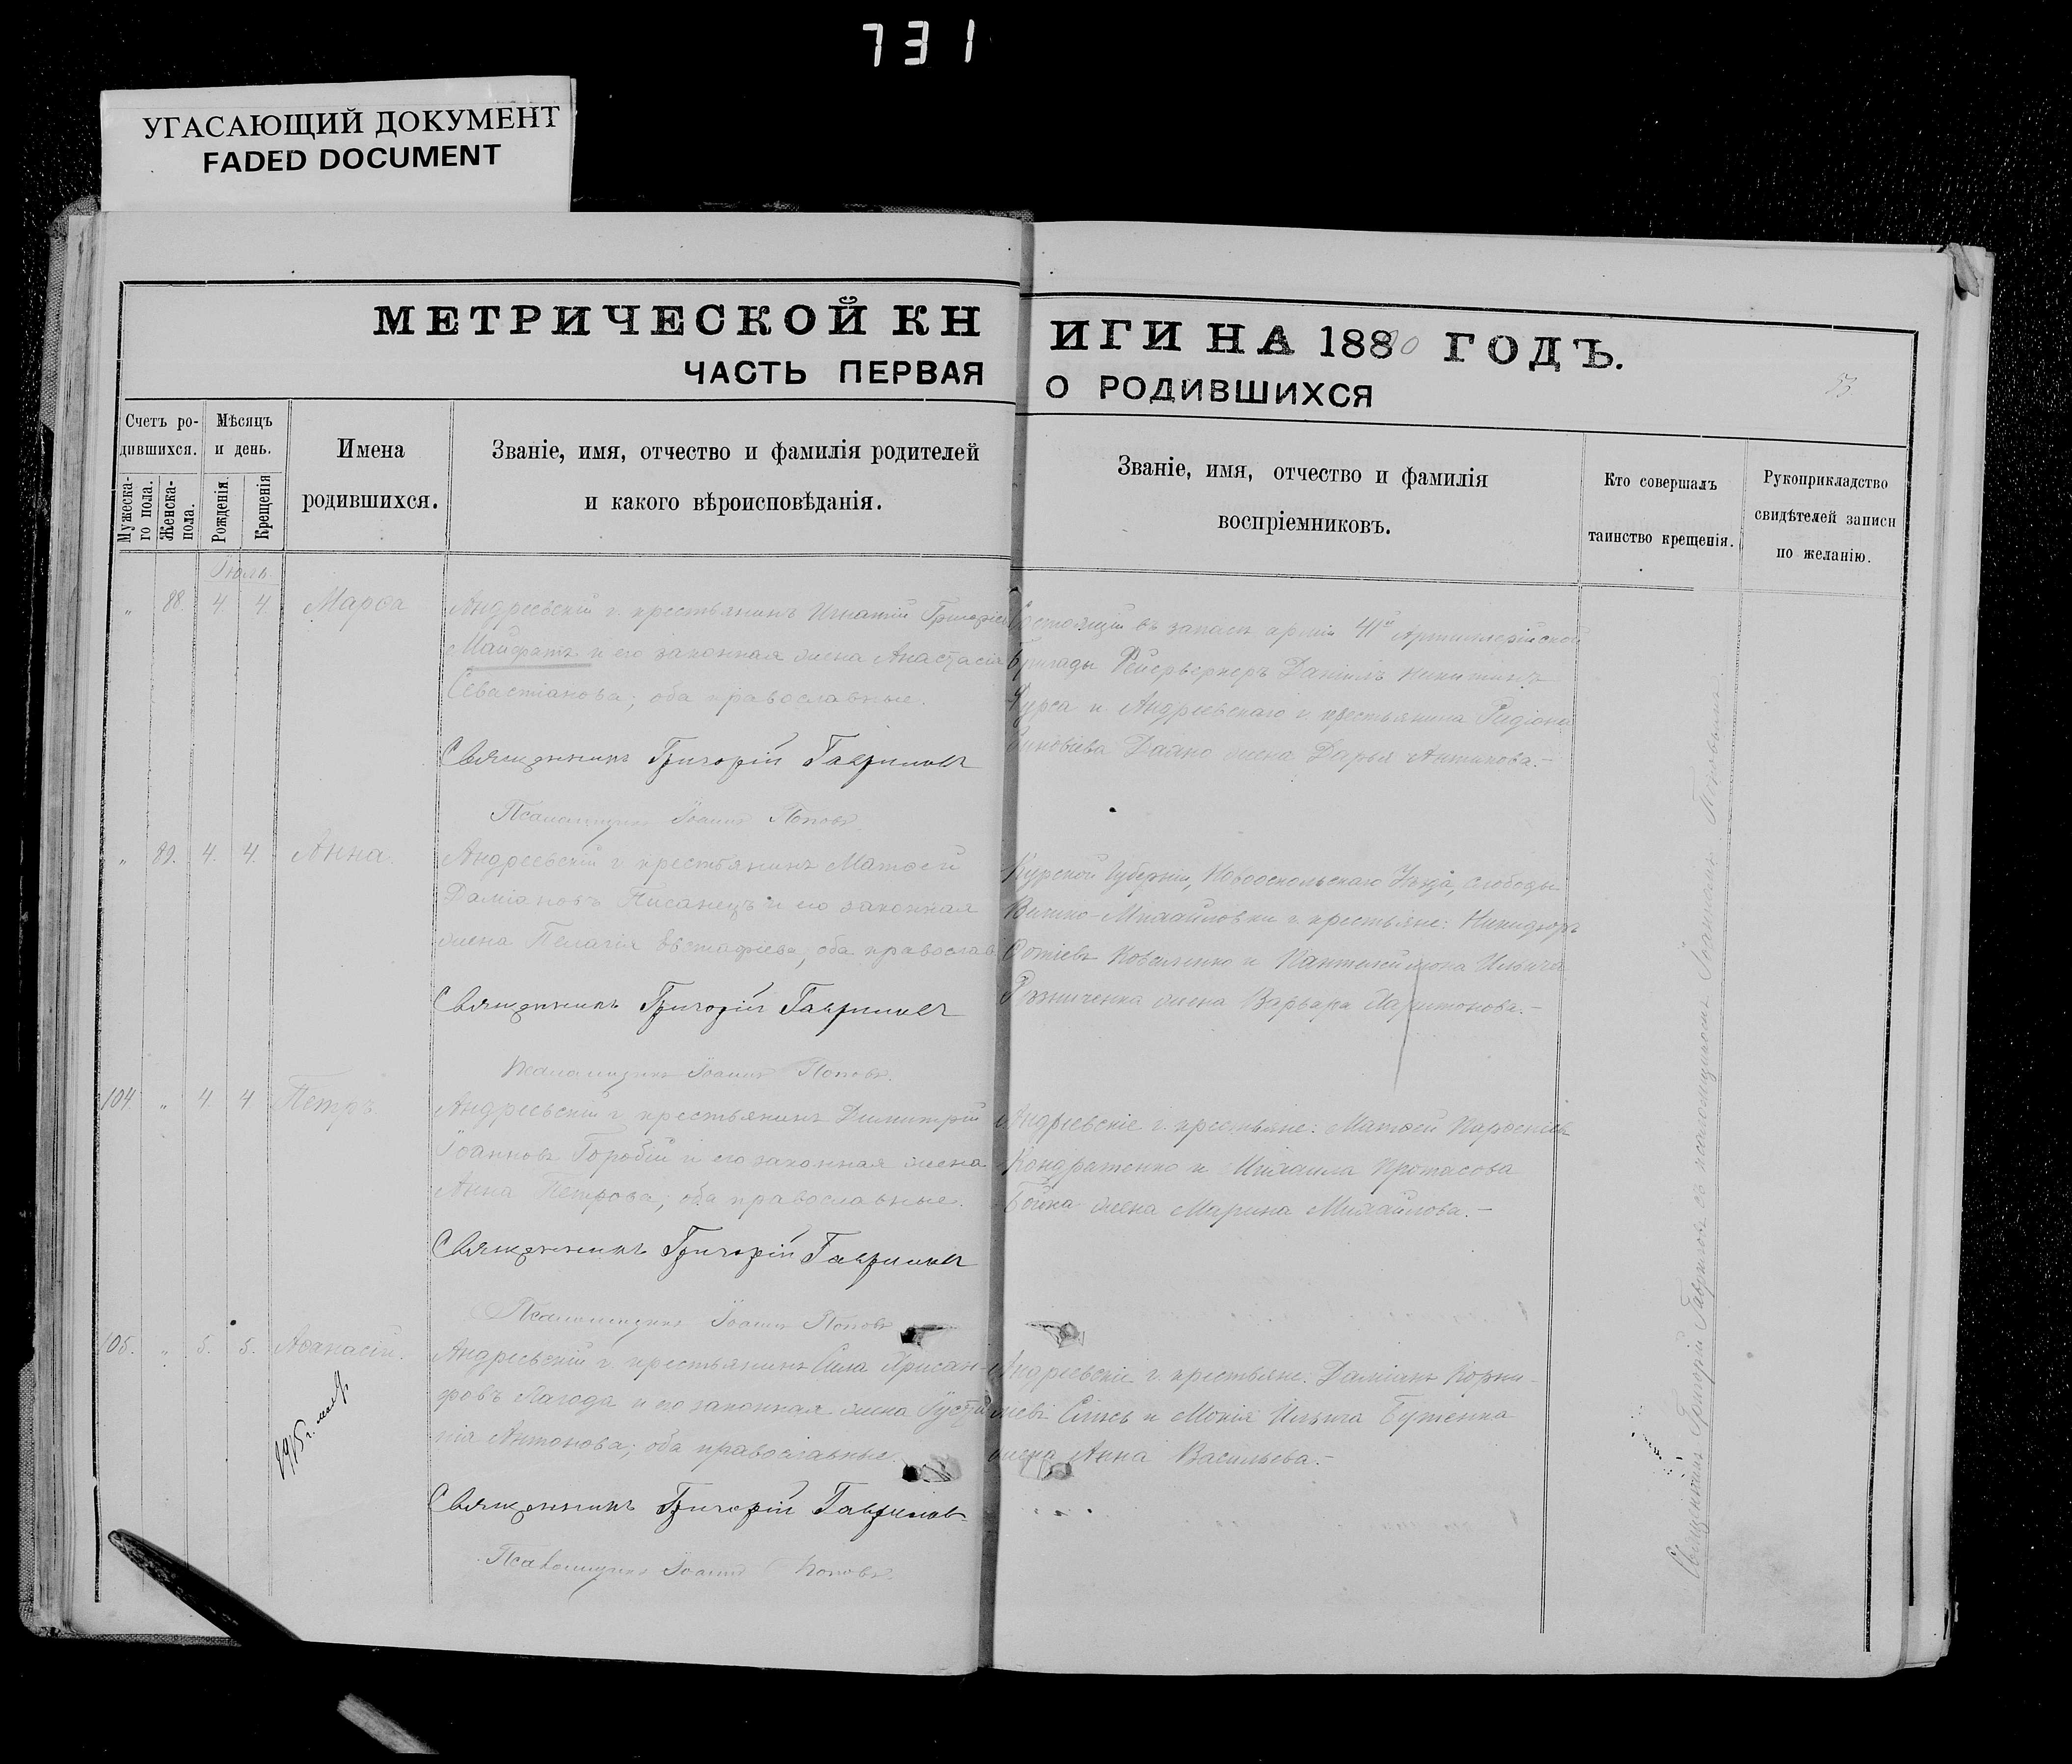 731
УГАСАЮЩИЙ ДОКУМЕНТ
FADED DOCUMENT
МЕТРИЧЕСКОЙ КНИГИ НА 1890 ГОДЪ.
ЧАСТЬ ПЕРВАЯ О РОДИВШИХСЯ
53
Счетъ ро-
дившихся.
Мужеска-
го пола.
Женска-
пола.
Мѣсяцъ
и день.
Рожденія.
Крещенія
Имена
родившихся.
Званіе, имя, отчество и фамилія родителей
и какого вѣроисповѣданія.
Званіе, имя, отчество и фамилія
воспріемниковъ.
Кто совершалъ
таинство крещенія.
Рукоприкладство
свидѣтелей записи
по желанію.
Іюль.
„ 88. 4. 4. Марѳа
Андреевскій г. крестьянинъ Игнатій
и его законная жена Анастасія
Севастіанова; оба православные.
Священникъ Григорій Гавриловъ
Псаломщикъ Іоаннъ Поповъ.
Состоящій въ запасѣ арміи 41й Артиллерійской
Бригады Фейерверкеръ Даніилъ Никитинъ
Фурса и Андреевскаго г. крестьянина Родіона
Зиновіева жена Дарья Антипова.-
„ 89. 4. 4. Анна.
Андреевскій г. крестьянинъ Матѳей
Даміановъ Писанецъ и его законная
жена Пелагія Евстафіева, оба православ
Священникъ Григорій Гавриловъ
Псаломщикъ Іоаннъ Поповъ.
Курской Губерніи, Новооскольскаго Уѣзда, слободы
Михайловки г. крестьяне: Никифоръ
Фотіевъ Коваленко и Пантелеимона Ильича
жена Варвара Харитонова.-
104. „ 4. 4 Петръ.
Андреевскій г. крестьянинъ Димитрій
Іоанновъ Горобій и его законная жена
Анна Петрова; оба православные.
Священникъ Григорій Гавриловъ
Псаломщикъ Іоаннъ Поповъ
Андреевскіе г. крестьяне: Матѳей
Кондратенко и Михаила Протасова
Бойка жена Марина Михайлова.-
105. „ 5. 5. Аѳанасій.
1915 г.
Андреевскій г. крестьянинъ Сила Хрисан-
фовъ Лагода и его законная жена Іусти
нія Антонова; оба православные.
Священникъ Григорій Гавриловъ
Псаломщикъ Іоаннъ Поповъ.
Андреевскіе г. крестьяне: Даміанъ Корни-
ліевъ и Мокія Ильича
жена Анна Васильева.-
Священникъ Григорій Гавриловъ съ псаломщикомъ Іоанномъ Поповымъ.